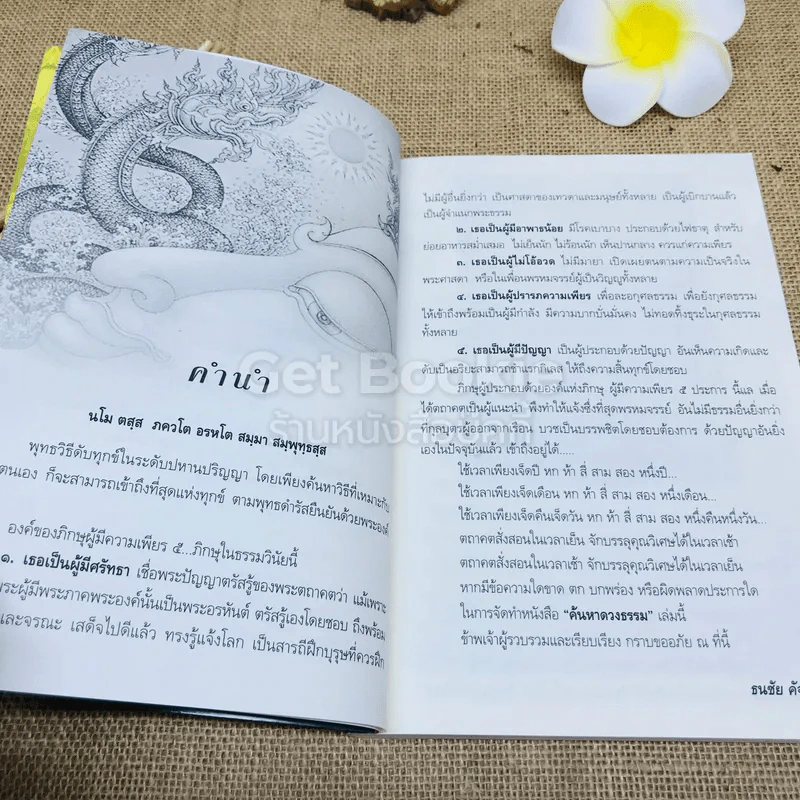 คำนำ
นโม ตสฺส ภควโต อรหโต สมฺมา สมฺพุทฺธสฺส
พุทธวิธีดับทุกข์ในระดับปหานปริญญา โดยเพียงค้นหาวิธีที่เหมาะกับ
ตนเอง ก็จะสามารถเข้าถึงที่สุดแห่งทุกข์ ตามพุทธดำรัสยืนยันด้วยพระองค์
องค์ของภิกษุผู้มีความเพียร ๕...ภิกษุในธรรมวินัยนี้
๑. เธอเป็นผู้มีศรัทธา เชื่อพระปัญญาตรัสรู้ของพระตถาคตว่า แม้เพราะ
พระผู้มีพระภาคพระองค์นั้นเป็นพระอรหันต์ ตรัสรู้เองโดยชอบ ถึงพร้อม
และจรณะ เสด็จไปดีแล้ว ทรงรู้แจ้งโลก เป็นสารถีฝึกบุรุษที่ควรฝึก
ไม่มีผู้อื่นยิ่งกว่า เป็นศาสดาของเทวดาและมนุษย์ทั้งหลาย เป็นผู้เบิกบานแล้ว
เป็นผู้จำแนกพระธรรม
๒. เธอเป็นผู้มีอาพาธน้อย มีโรคเบาบาง ประกอบด้วยไฟธาตุ สำหรับ
ย่อยอาหารสม่ำเสมอ ไม่เย็นนัก ไม่ร้อนนัก เห็นปานกลาง ควรแก่ความเพียร
๓. เธอเป็นผู้ไม่โอ้อวด ไม่มีมายา เปิดเผยตนตามความเป็นจริงใน
พระศาสดา หรือในเพื่อนพรหมจรรย์ผู้เป็นวิญญูทั้งหลาย
๔. เธอเป็นผู้ปรารภความเพียร เพื่อละอกุศลธรรม เพื่อยังกุศลธรรม
ให้เข้าถึงพร้อมเป็นผู้มีกำลัง มีความบากบั่นมั่นคง ไม่ทอดทิ้งธุระในกุศลธรรม
ทั้งหลาย
๕. เธอเป็นผู้มีปัญญา เป็นผู้ประกอบด้วยปัญญา อันเห็นความเกิดและ
ดับเป็นอริยะสามารถชำแรกกิเลส ให้ถึงความสิ้นทุกข์โดยชอบ
ภิกษุผู้ประกอบด้วยองค์แห่งภิกษุ ผู้มีความเพียร ๕ ประการ นี้แล เมื่อ
ได้ตถาคตเป็นผู้แนะนำ พึงทำให้แจ้งซึ่งที่สุดพรหมจรรย์ อันไม่มีธรรมอื่นยิ่งกว่า
ที่กุลบุตรผู้ออกจากเรือน บวชเป็นบรรพชิตโดยชอบต้องการ ด้วยปัญญาอันยิ่ง
เองในปัจจุบันแล้ว เข้าถึงอยู่ได้.....
ใช้เวลาเพียงเจ็ดปี หก ห้า สี่ สาม สอง หนึ่งปี...
ใช้เวลาเพียงเจ็ดเดือน หก ห้า สี่ สาม สอง หนึ่งเดือน...
ใช้เวลาเพียงเจ็ดคืนเจ็ดวัน หก ห้า สี่ สาม สอง หนึ่งคืนหนึ่งวัน...
ตถาคตสั่งสอนในเวลาเย็น จักบรรลุคุณวิเศษได้ในเวลาเช้า
ตถาคตสั่งสอนในเวลาเช้า จักบรรลุคุณวิเศษได้ในเวลาเย็น
หากมีข้อความใดขาด ตก บกพร่อง หรือผิดพลาดประการใด
ในการจัดทำหนังสือ “ค้นหาดวงธรรม” เล่มนี้
ข้าพเจ้าผู้รวบรวมและเรียบเรียง กราบขออภัย ณ ที่นี้
ธนชัย